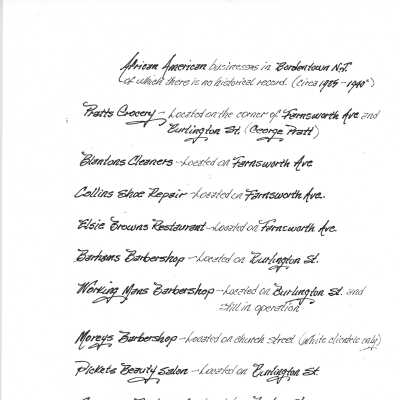 African American businesses in Bordentown N.J.
of which there is no historical record. (circa 1925-1940's)
Pratts Grocery - Located on the corner of Farnsworth Ave and
Burlington St. (George Pratt)
Blantons Cleaners - Located on Farnsworth Ave
Collins Shoe Repair - Located on Farnsworth Ave.
Elsie Browns Restaurant - Located on Farnsworth Ave.
Barhams Barbershop - Located on Burlington St.
Working Mans Barbershop - Located on Burlington St. and
still in operation
Moreys Barbershop - Located on church street (white clientele only)
Pickets Beauty Salon - Located on Burlington St